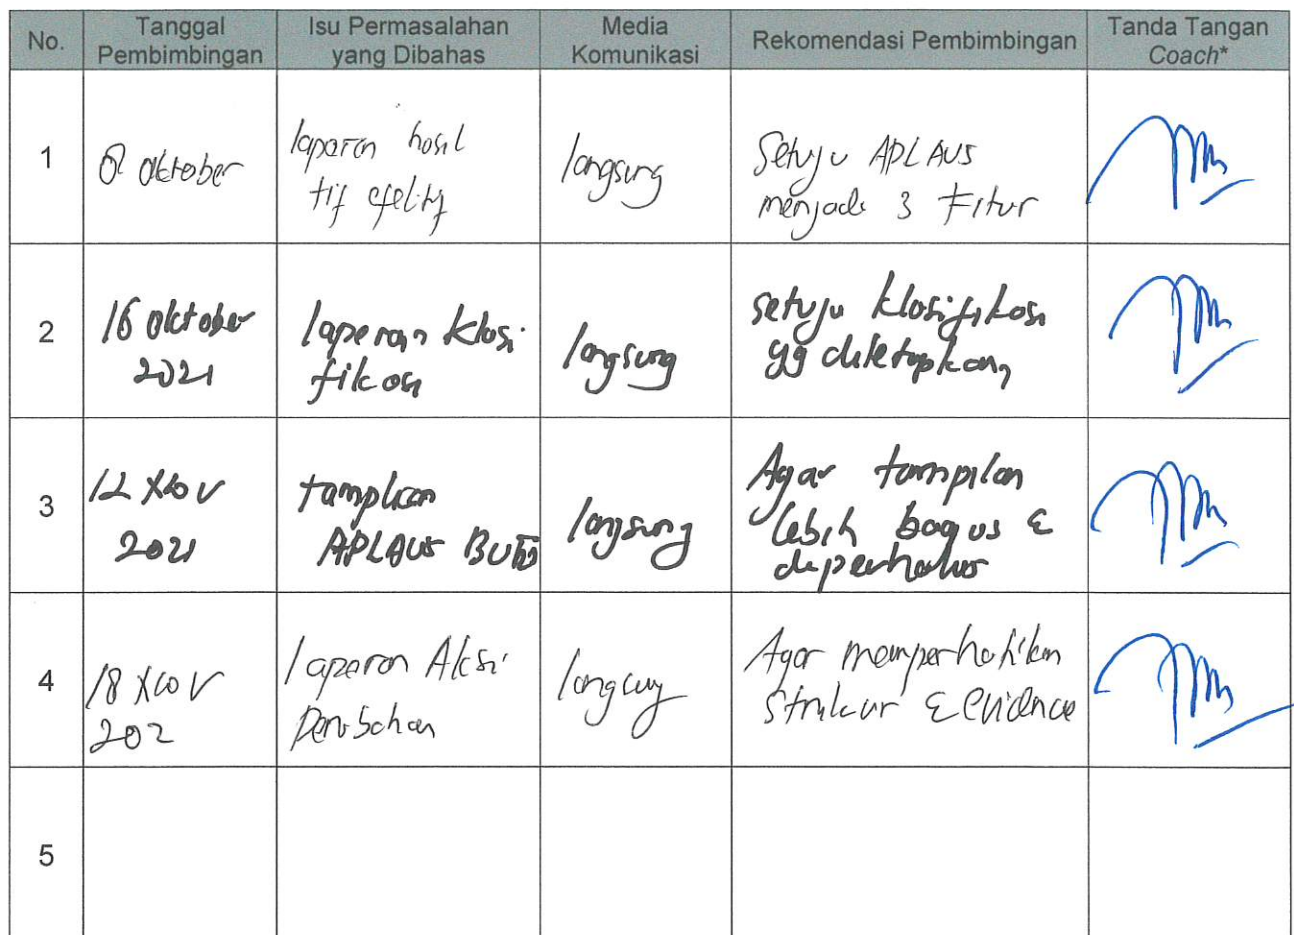 No.
Tanggal
Pembimbingan
Isu Permasalahan
yang Dibahas
Media
Komunikasi
Rekomendasi Pembimbingan
Tanda Tangan
Coach*
1
8 Oktober
laporan hasil
tif efektif
langsung
Setuju APLAUS
menjadi 3 Fitur
2
16 Oktober
2021
laporan klasi
fikasi
langsung
setuju klasifikasi
yg ditetapkan
3
12 Nov
2021
tampilan
APLAUS
langsung
Agar tampilan
lebih bagus &
diperhalus
4
18 Nov
202
laporan Aksi
Perubahan
langsung
Agar memperhatikan
Struktur & evidence
5